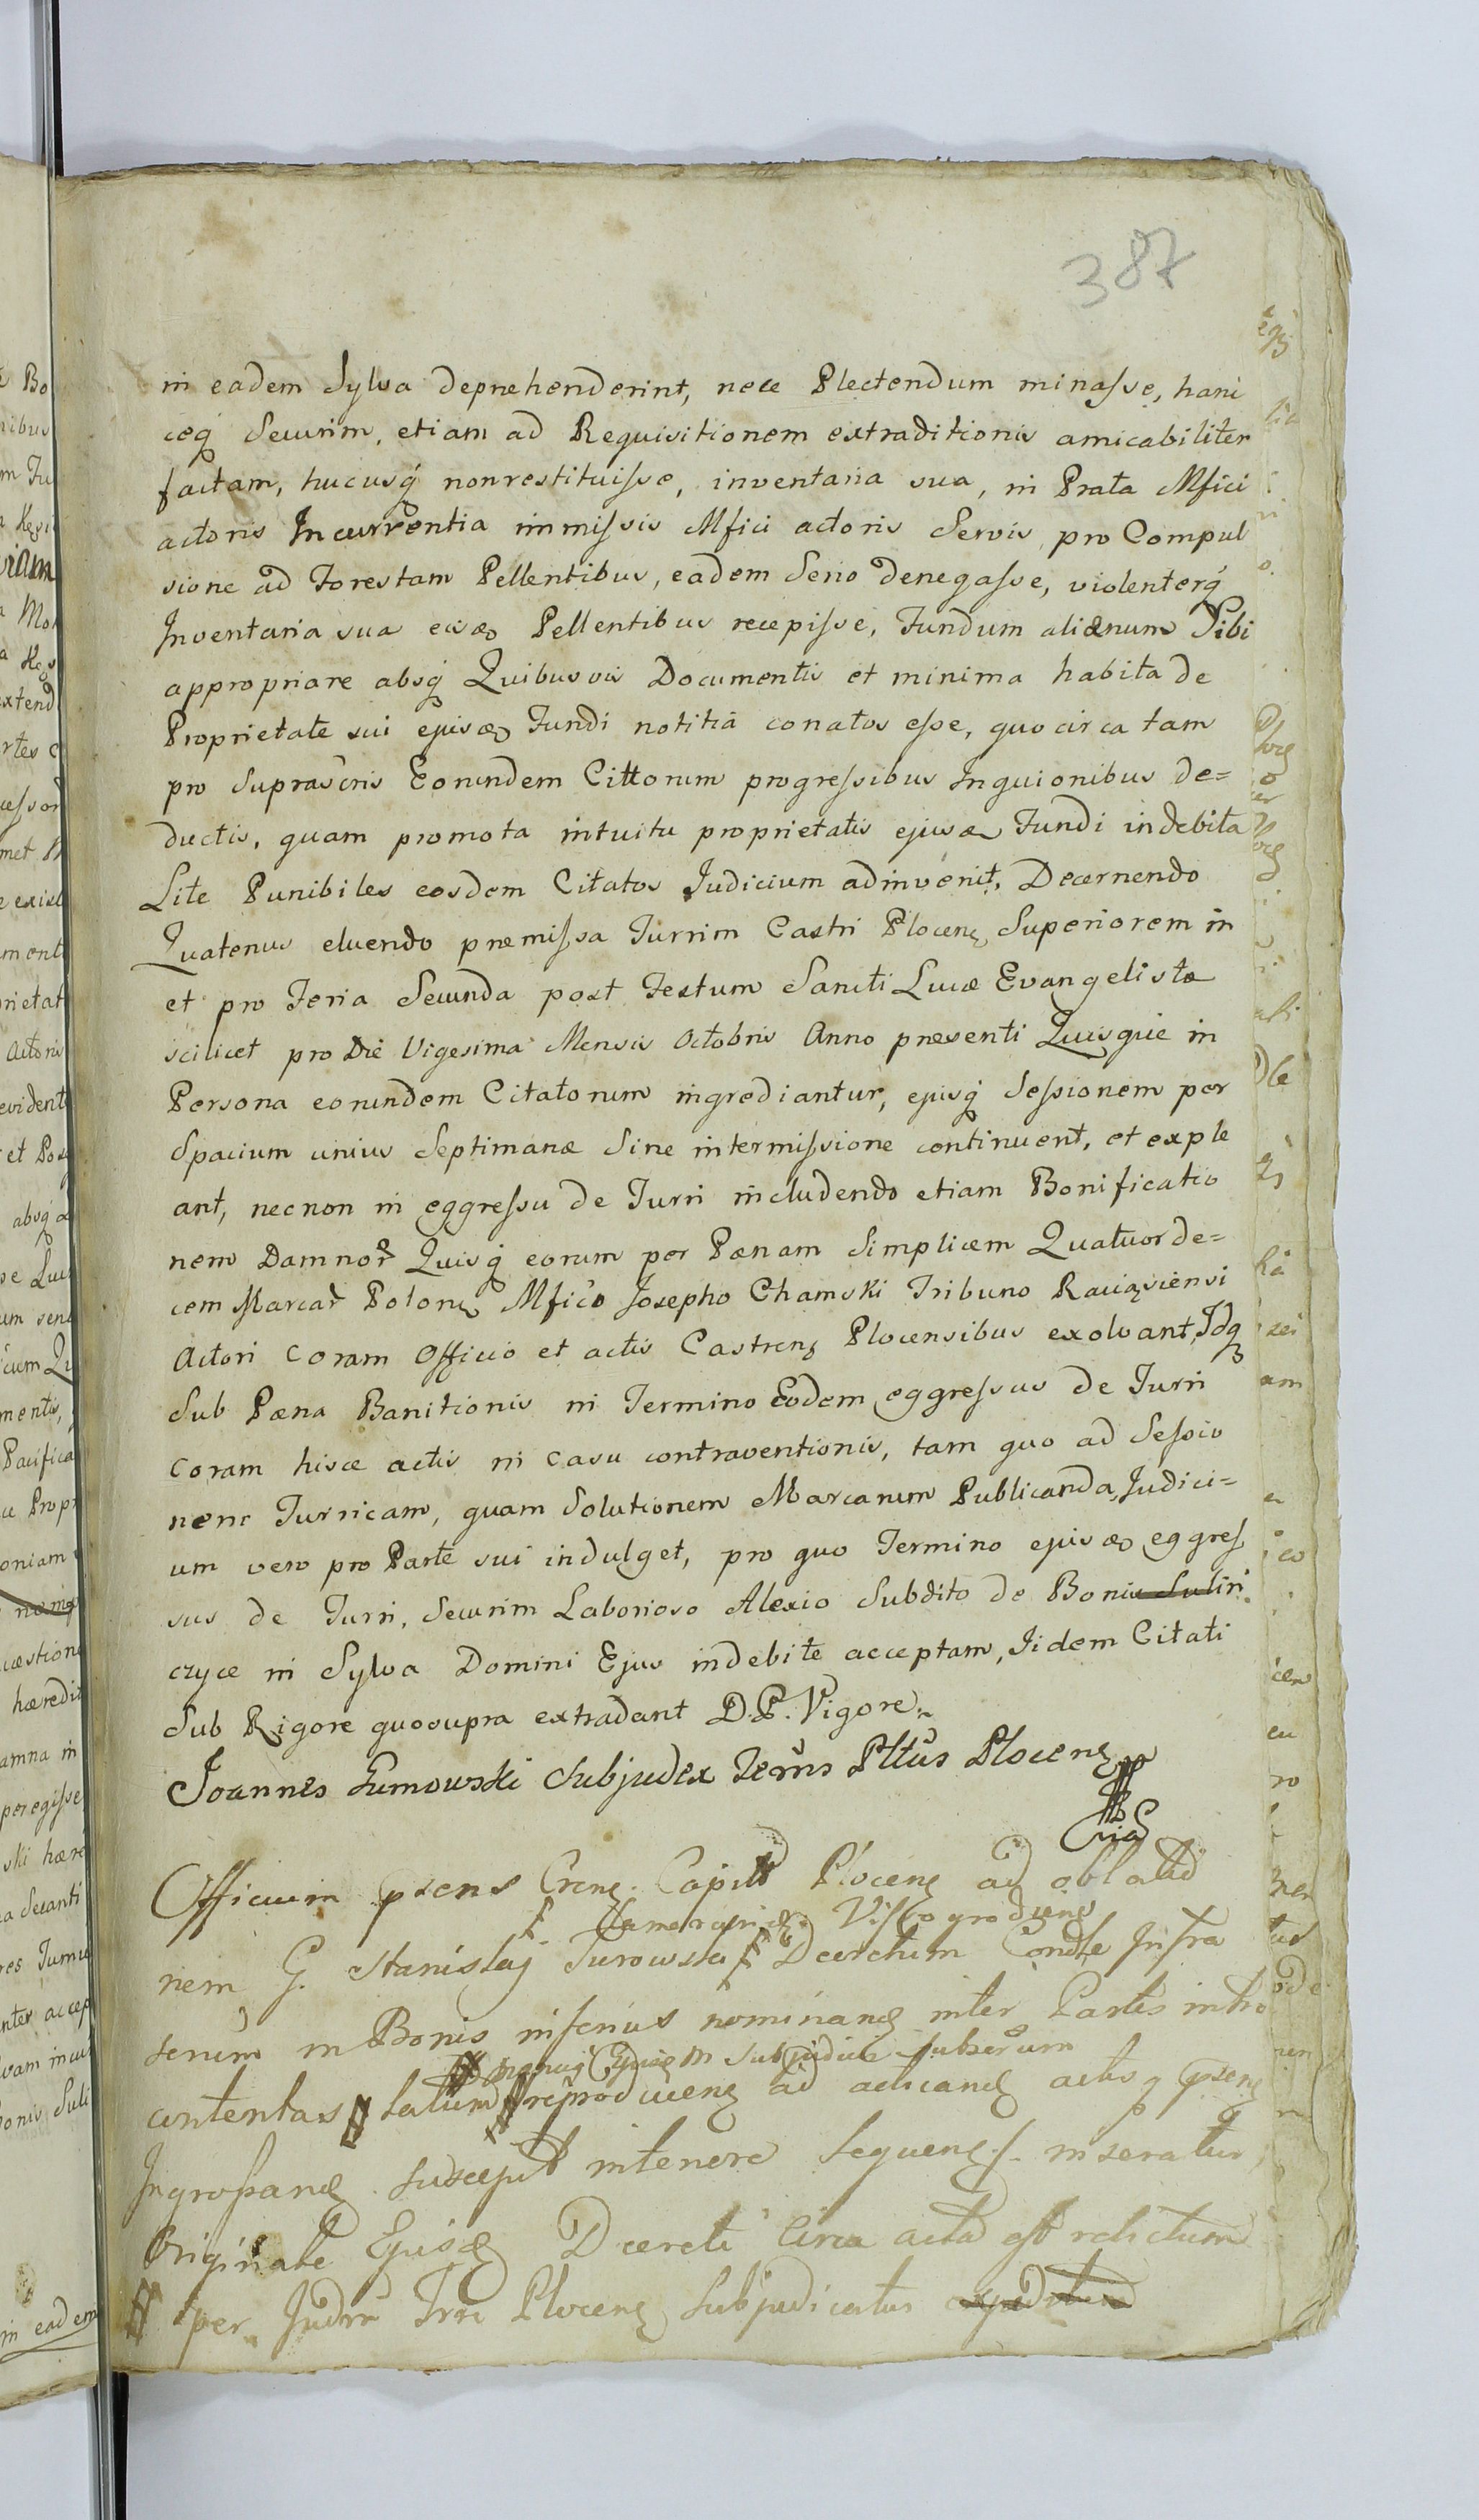 387
in eadem Sylva deprehenderint, nece Plectendum minasse, hanc
ceq Securim, etiam ad Requisitionem extraditionis amicabiliter
factam, hucusq nonrestituisse, inventaria sua, in Prata Mfici
actoris Incurrentia immissis Mfici actoris Servis pro Compul
sione ad Forestam Pellentibus, eadem Serio denegasse, violenterq
Inventaria sua eisd Pellentibus recepisse, Fundum alienum Sibi
appropriare absq Quibusvis Documentis et minima habita de
Proprietate sui ejusd Fundi notitia conatos esse, quo circa tam
pro Suprascris Eorundem Cittorum progressibus Inquionibus de=
ductis, quam promota intuitu proprietatis ejusd Fundi indebita
Lite Punibiles eosdem Citatos Judicium adinvenit, Decernendo
Quatenus eluendo præmissa Turrim Castri Plocens Superiorem in
et pro Feria Secunda post Festum Sancti Lucæ Evangelistæ
scilicet pro Die Vigesima Mensis Octobris Anno præsenti Quisque in
Persona eorundem Citatorum ingrediantur, ejusq Sessionem per
Spacium unius Septimanæ Sine intermissione continuent, et exple
ant, necnon in eggressu de Turri includendo etiam Bonificatio
nem Damnor Quisq eorum per Pænam Simplicem Quatuorde=
cem Marcar Polon Mfico Josepho Chamski Tribuno Raciąsiensi
Actori Coram Officio et actis Castrens Plocensibus exolvant, Idq
Sub Pæna Banitionis in Termino Eodem eggressus de Turri
Coram hisce actis in Casu contraventionis, tam quo ad Sessio
nem Turricam, quam Solutionem Marcarum Publicanda, Judici=
um vero pro Parte sui indulget, pro quo Termino ejusd eggres
sus de Turri, Securim Laborioso Alexio Subdito de Bonis Sulin
czyce in Sylva Domini Ejus indebite acceptam, Iidem Citati
Sub Rigore quosupra extradant D.P. Vigore.
Joannes Sumowski Subjudex Terrus Pltus Plocens
Officium psens Crens Capitt Plocens ad oblatio
Camerarij Vissogrodiens
nem G. Stanislaj Turowski Decretum Condle Infra
in Bonis inferius nominand inter Partes intro
manuq Ejusdem Subjudicis Subscrium
contentas latum reproducens ad acticand actisq psens
Ingrossand suscepit in tenore sequens. inseratur,
Originale Ejusd Decreti circa acta est relictum
per Judm Trre Plocens Subjudicatus